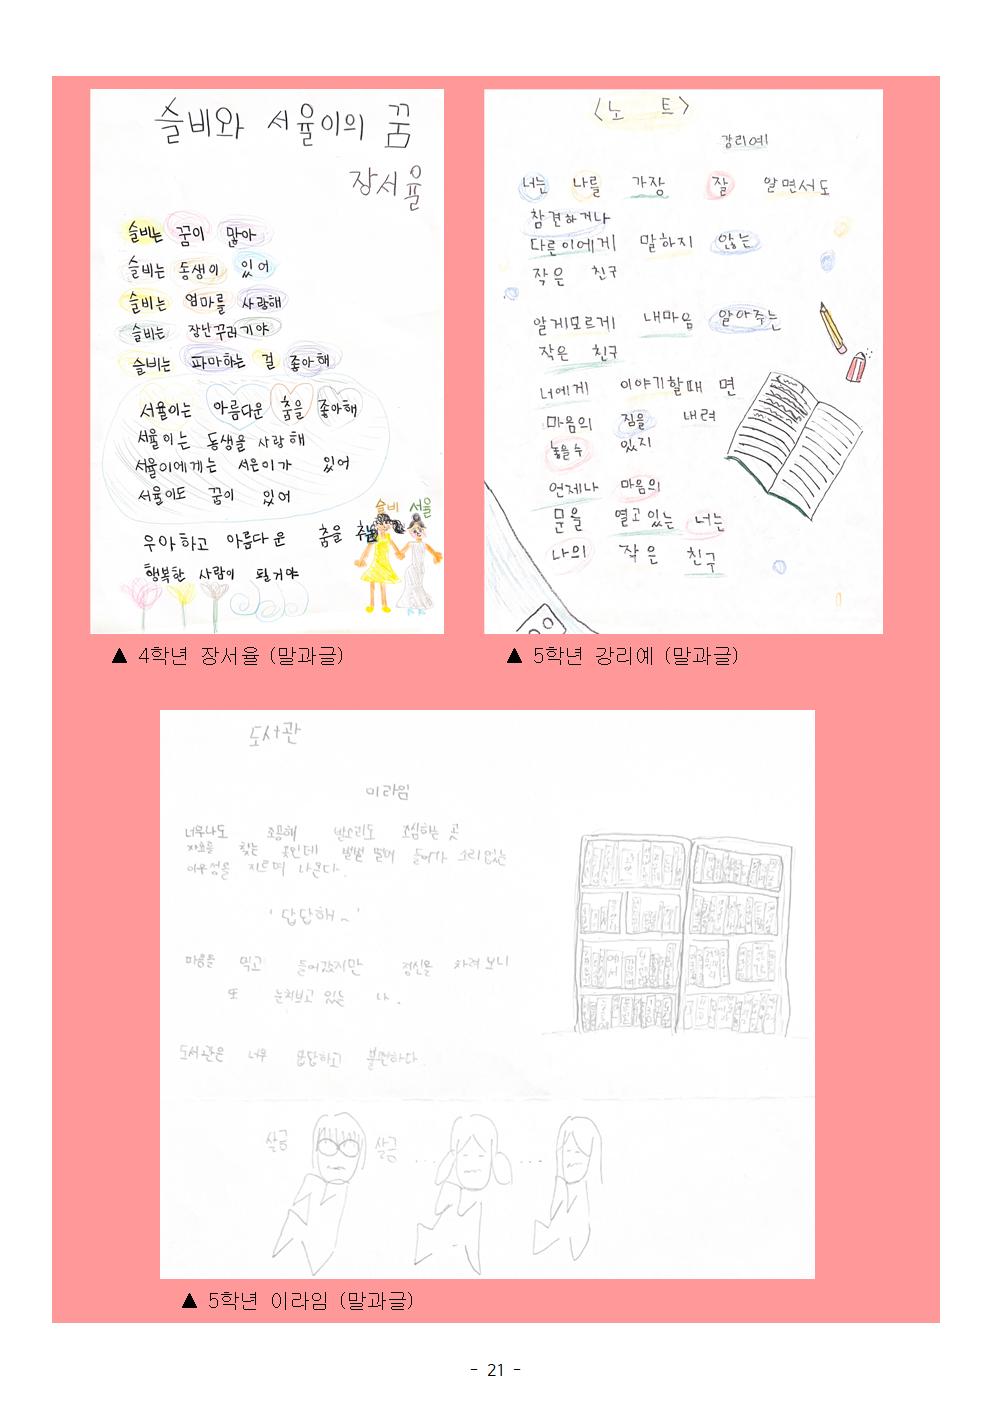 슬비와 서율이의 꿈
장서율
슬비는 꿈이 많아
슬비는 동생이 있어
슬비는 엄마를 사랑해
슬비는 장난꾸러기야
슬비는 파마하는 걸 좋아해
서율이는 아름다운 춤을 좋아해
서율이는 동생을 사랑해
서율이에게는 서은이가 있어
서율이도 꿈이 있어
우아하고 아름다운 춤을 추는
행복한 사람이 될거야
슬비 서율
▲ 4학년 장서율 (말과글)
<노 트>
강리예
너는 나를 가장 잘 알면서도
참견하거나
다른이에게 말하지 않는
작은 친구
알게모르게 내마음 알아주는
작은 친구
너에게 이야기할때 면
마음의 짐을 내려
놓을수 있지
언제나 마음의
문을 열고있는 너는
나의 작은 친구
▲ 5학년 강리예 (말과글)
도서관
이라임
너무나도 조용해 발소리도 조심하는 곳
자료를 찾는 곳인데 벌벌 떨며 들어가 소리없는
아우성을 지르며 나온다.
'답답해~'
마음을 먹고 들어갔지만 정신을 차려보니
또 눈치보고 있는 나.
도서관은 너무 답답하고 불편하다.
살금 살금 ... ...
▲ 5학년 이라임 (말과글)
- 21 -